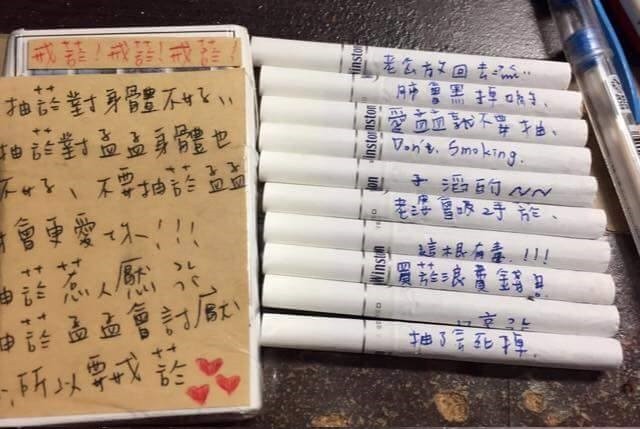 戒菸！戒菸！戒菸！
抽菸對身體不好、
抽菸對孟孟身體也
不好、不要抽菸孟孟
會更愛你!!!
抽菸惹人厭
抽菸孟孟會討厭
所以要戒菸
Winston 老公放回去
Winston 肺會黑掉喔、
Winston 愛孟孟就不要抽、
Winston Don't Smoking.
子滔的~~
老婆會吸2手菸、
這根有毒、!!!
Winston 買菸浪費錢
抽了會死掉、